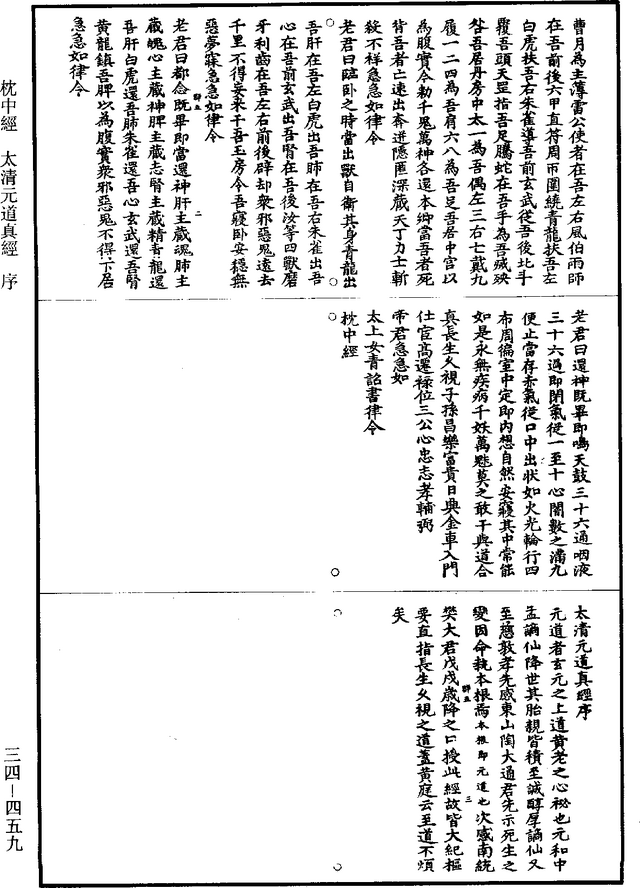 曹月為主薄雷公使者在吾左右風伯雨師
在吾前後六甲直符周帀圍繞青龍扶吾左
白虎扶吾右朱雀導吾前玄武從吾後北斗
覆吾頭天罡指吾足騰蛇在吾手為吾滅殃
咎吾居丹房中太一為吾偶左三右七戴九
履一二四為吾肩六八為吾足吾居中宮以
為腹實今勑千鬼萬神各還本鄉當吾者死
背吾者亡速出奔逆隱匿深藏天丁力士斬
殺不祥急急如律令
老君曰臨卧之時當出獸自衛其身青龍出
吾肝在吾左白虎出吾肺在吾右朱雀出吾
心在吾前玄武出吾腎在吾後汝等四獸磨
牙利齒在吾左右前後辟却衆邪惡鬼遠去
千里不得妄来干吾玉房令吾寢卧安穩無
惡夢寐急急如律令
老君曰都念既畢即當還神肝主藏魂肺主
藏魄心主藏神脾主藏志腎主藏精青龍還
吾肝白虎還吾肺朱雀還吾心玄武還吾腎
黃龍鎮吾脾以為腹實衆邪惡鬼不得下居
急急如律令
老君曰還神既畢即鳴天鼓三十六通咽液
三十六過即閉氣從一至十心闇數之滿九
便止當存赤氣從口中出狀如火光輪行四
布周徧室中定即內想自然安寢其中常能
如是永無疾病千妖萬魅莫之敢干與道合
真長生久視子孫昌樂富貴日興金車入門
仕官高遷祿位三公心忠志孝輔弼
帝君急急如
太上女青詔書律令
枕中經
太清元道真經序
元道者玄元之上道黃老之心祕也元和中
孟謫仙降世其胎親皆積至誠醇厚謫仙又
至慈敦孝先感東山陶大通君先示死生之
變因命執本根焉本根即元道也次感南統
樊大君戊戌歲降之口授此經故皆大紀樞
要直指長生久視之道蓋黃庭云至道不煩
矣
枕中經　太清元道真經　序
三四－四五九